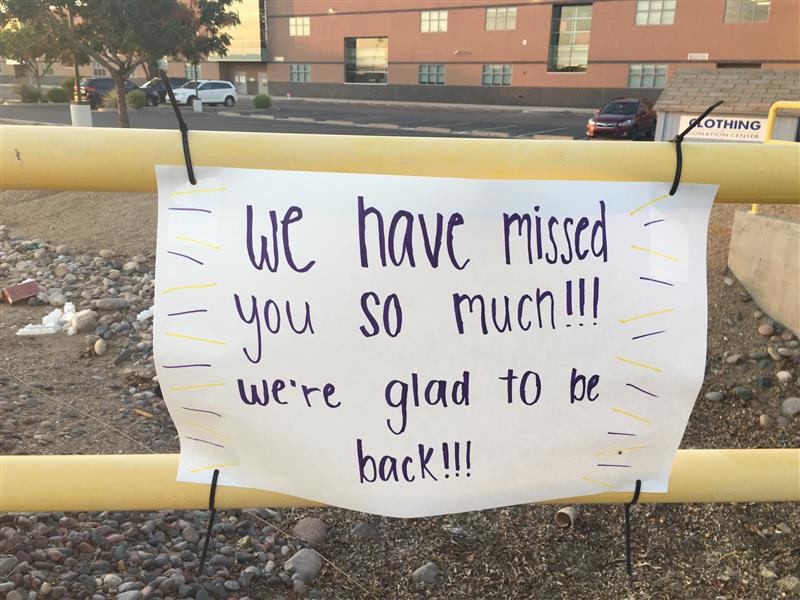 CLOTHING
DONATION CENTER
We have missed
you so much!!!
we're glad to be
back!!!